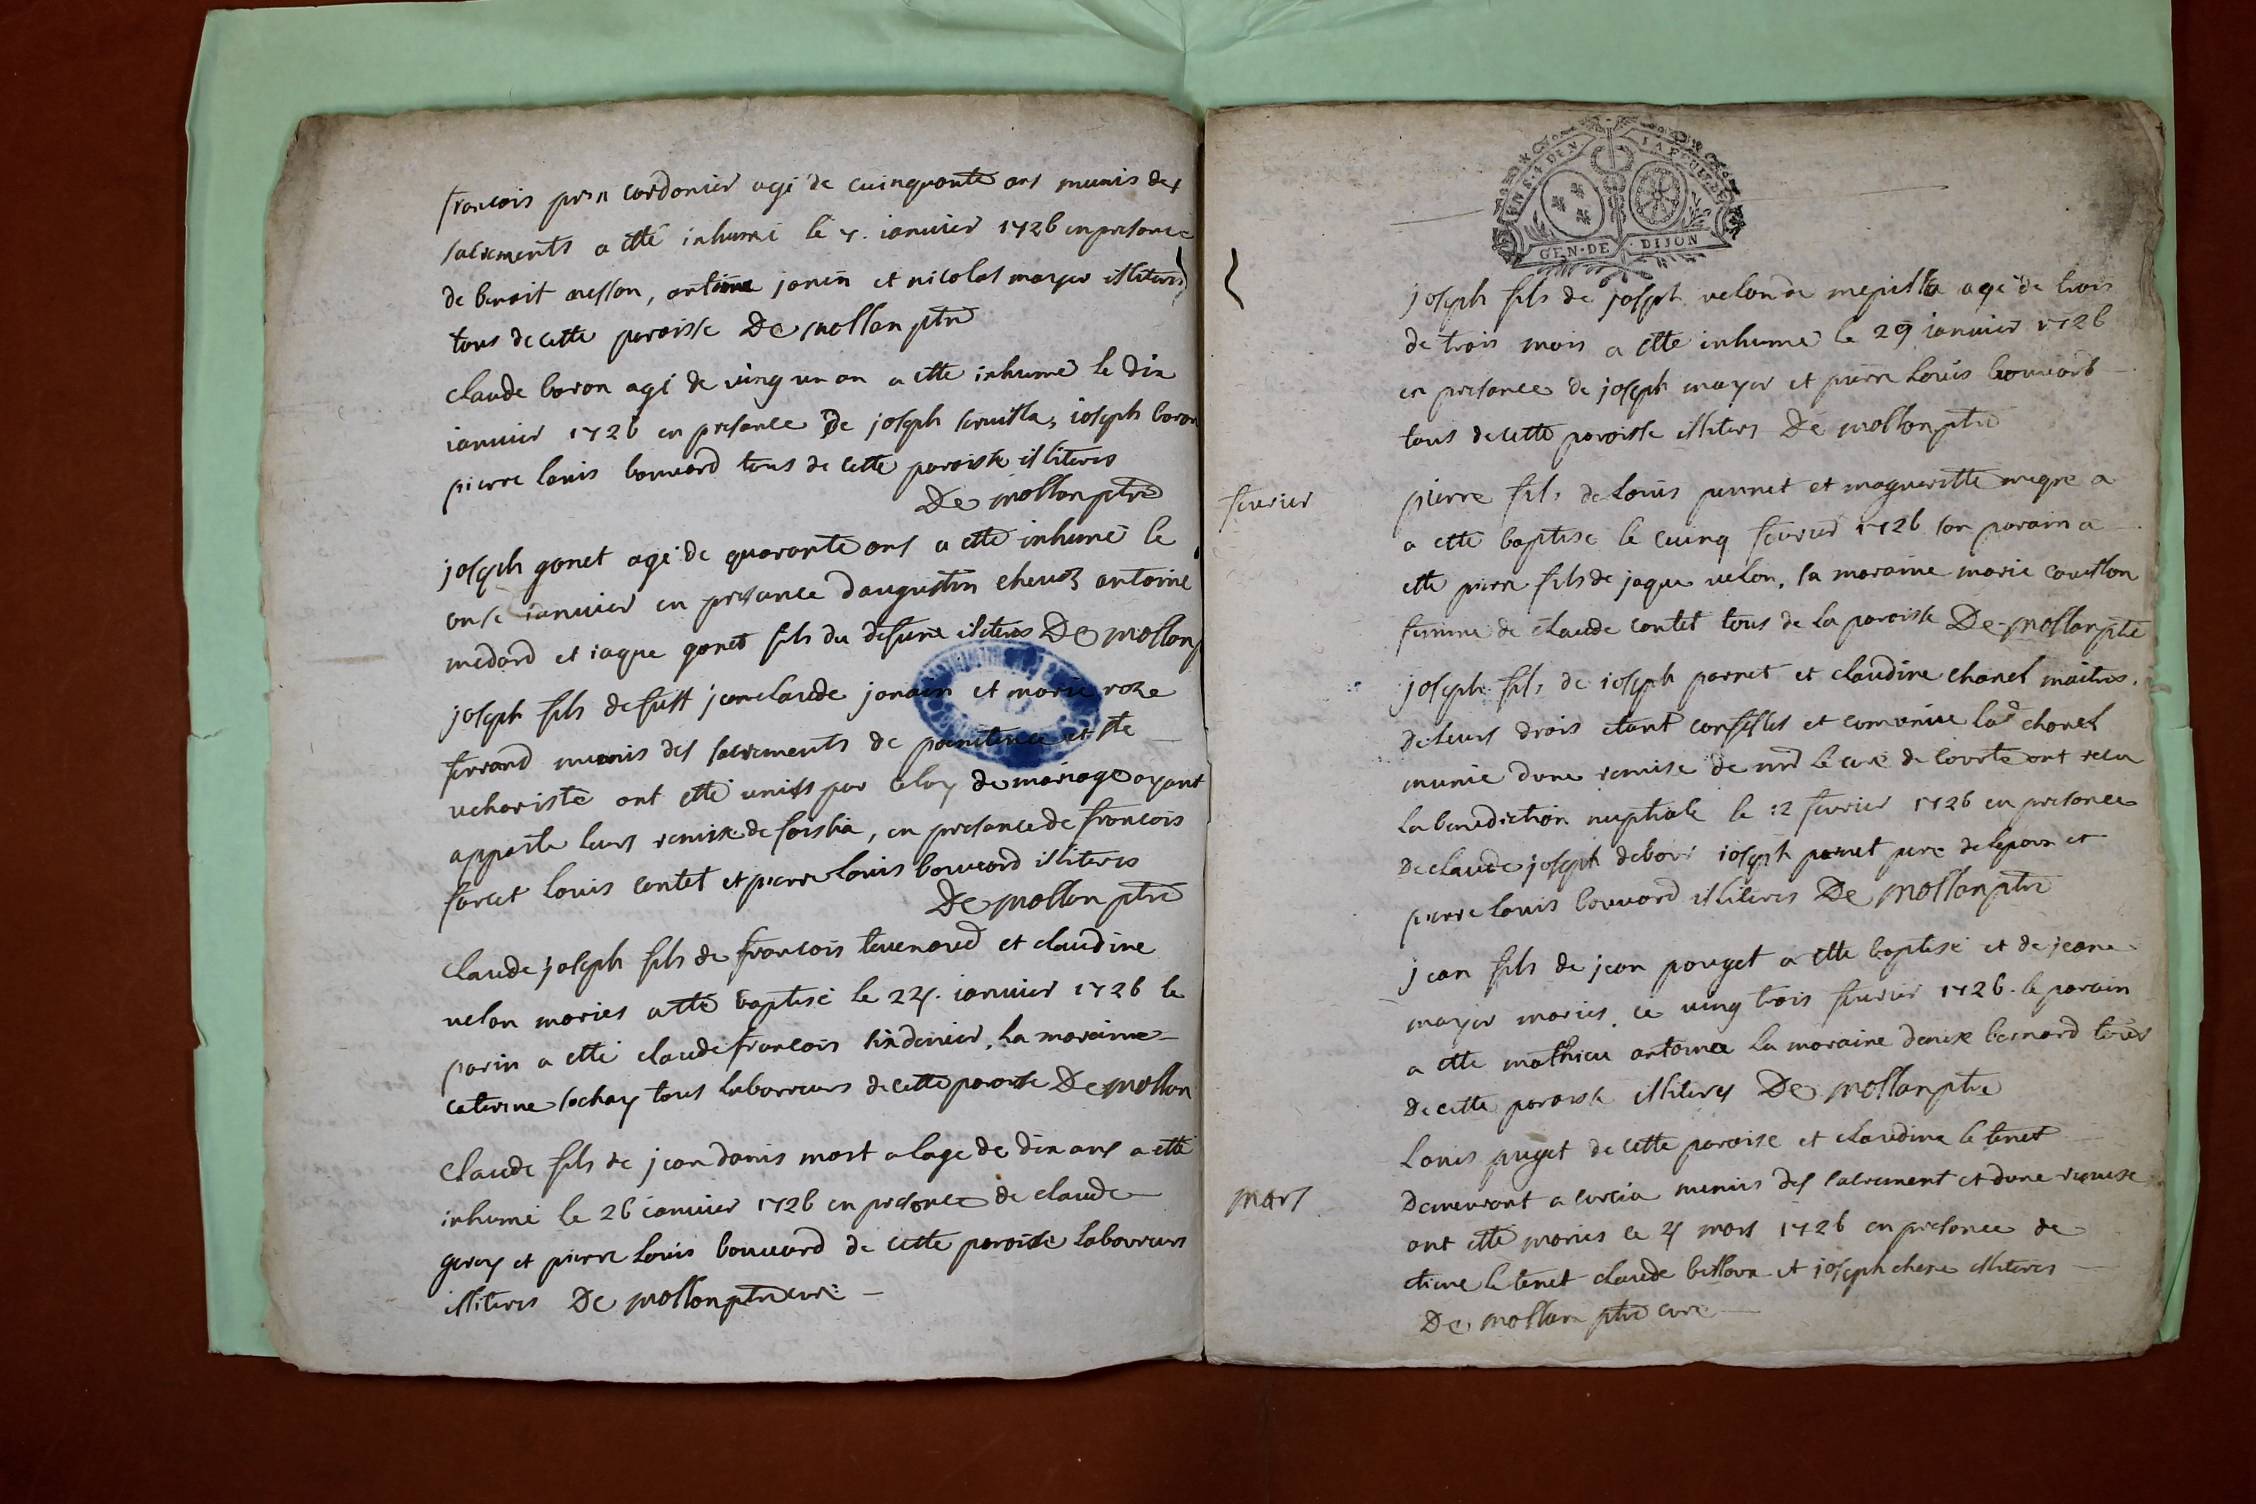 françois prin cordonier agé de cuinquante ans munis des
sacrements a etté inhumé le 7. ianuier 1726 en presance
de benoit messon, antoine janin et nicolas mayer illiteres
tous de cette paroisse De mollan ptre
claude boron agé de uing un an a etté inhumé le dix
ianuier 1726 en presance De joseph ioseph boron
pierre louis bouuard tous de cette paroisse illiteres
De mollan ptre
joseph gonet agé de quarante ans a etté inhumé le
onse ianuier en presance daugustin cheuoz antoine
medard et iaque gonet fils du defunt illiteres De mollan
joseph fils de fust jean claude janain et marie roze
ferrand munis des sacrements de poenitence et ste
ucharistie ont etté unis par celuy de mariage ayant
apporté leurs remise de forshia, en presance de francois
foret louis contet et pierre louis bouuard illiteres
De mollan ptre
claude joseph fils de françois teuenared et claudine
uelon mories atté baptisé le 24. ianuier 1726 le
parin a etté claude francois sixdenier, la maraine
caterine sochay tous laboureurs de cette paroisse De mollan
claude fils de jean danis mort a lage de dix ans a etté
inhumé le 26 ianuier 1726 en presance de claude
gerey et pierre louis bouuard de cette paroisse laboureurs
illiteres De mollon ptre curé
EN S. 4 DEN. LA FEUILLE
GEN. DE DIJON
joseph fils de joseph uelon de mepilla agé de trois
de trois mois a etté inhumé le 29 ianuier 1726
en presance de joseph mayer et pierre louis bouuard
tous de cette paroisse illiteres De mollon ptre
feurier
pierre fils de louis pernet et magueritte megre a
a etté baptisé le cuinq feurier 1726 son parain a
etté pierre fils de jaque uelon, sa maraine marie couillon
femme de claude contet tous de la paroisse De mollan ptre
joseph fils de ioseph parnet et claudine chanel maitres
de leurs drois etant confesses et comunie lad chanel
munie dune remise de mr le curé de courte ont receu
la benediction nuptiale le 12 feurier 1726 en presance
De claude joseph debour ioseph parnet pere de lepoux et
pierre louis bouuard illiteres De mollan ptre
jean fils de jean pouget a etté baptisé et de jeane
mayer mories. ce uing trois feurier 1726. le parain
a etté mathieu antoine la maraine denise bernard tous
de cette paroisse illiteres De mollan ptre
mars
Louis puget de cette paroise et claudine le tenet
Demeurant a curcia munis des sacrement et dune remise
ont etté mories le 4 mars 1726 en presance de
etiene le tenet claude billour et joseph chene illiteres
De mollan ptre curé